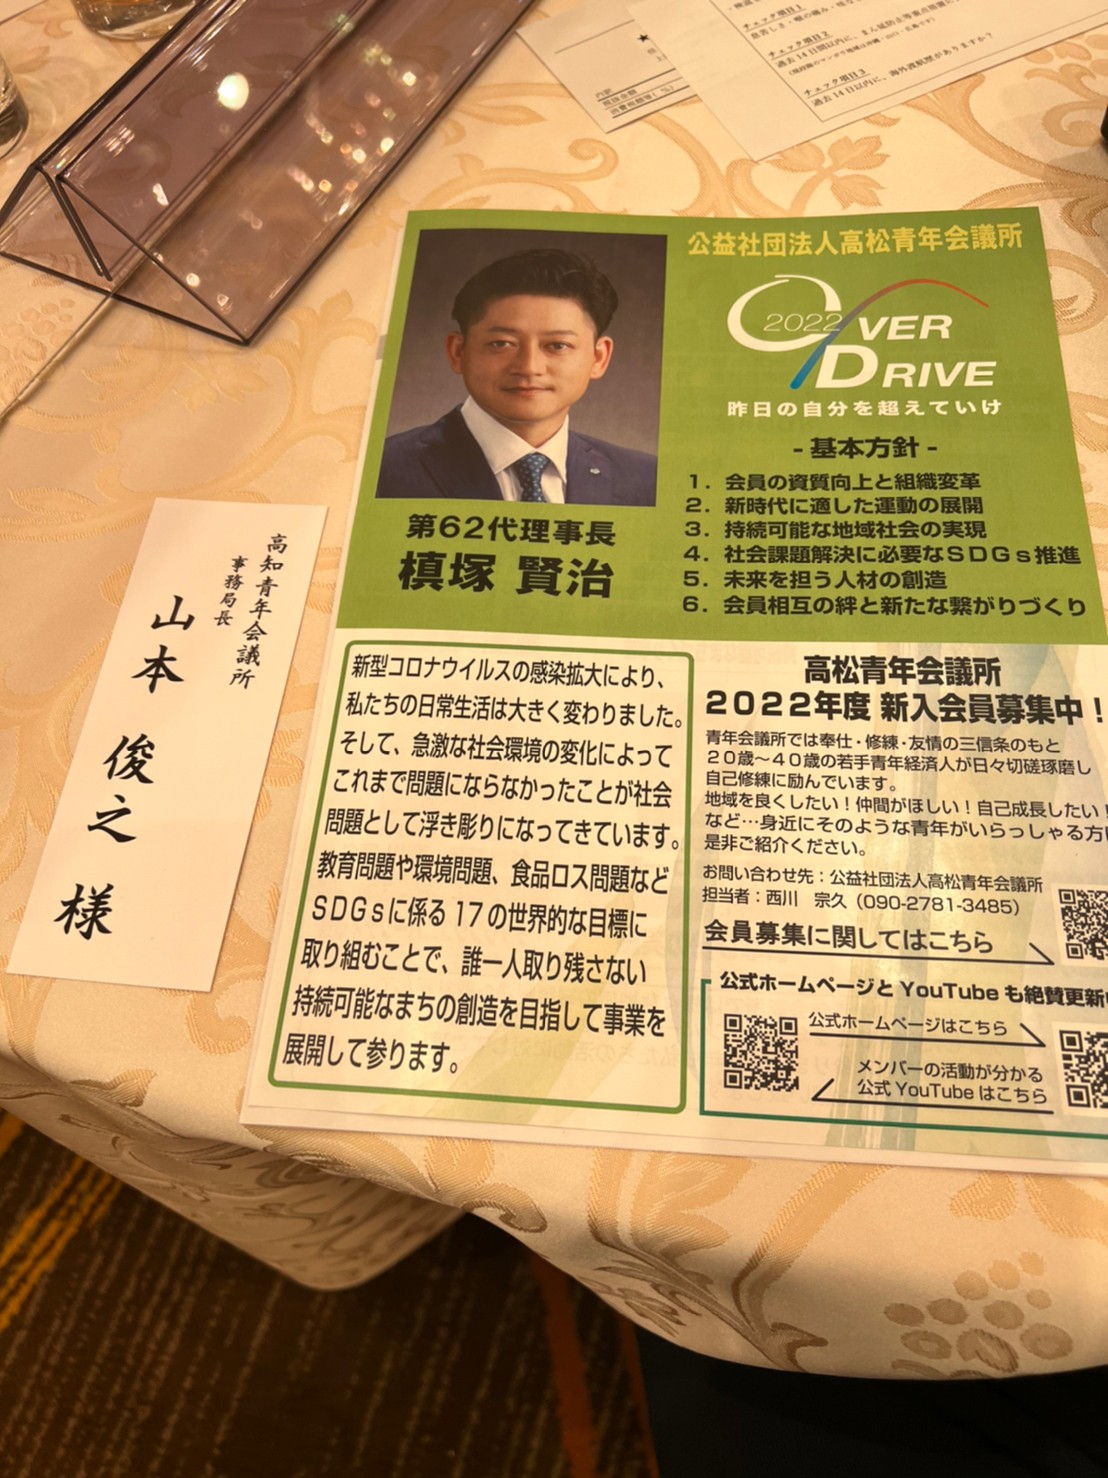 内訳
税抜金額
消費税額等( %)
チェック項目1.
チェック項目2.
過去14日間以内に、
チェック項目3.
過去14日以内に、海外渡航歴がありますか?
公益社団法人高松青年会議所
2022 OVER
DRIVE
昨日の自分を超えていけ
- 基本方針 -
1. 会員の資質向上と組織変革
2. 新時代に適した運動の展開
3. 持続可能な地域社会の実現
4. 社会課題解決に必要なSDGs推進
5. 未来を担う人材の創造
6. 会員相互の絆と新たな繋がりづくり
第62代理事長
槙塚 賢治
高知青年会議所
事務局長
山本 俊之 様
新型コロナウイルスの感染拡大により、
私たちの日常生活は大きく変わりました。
そして、急激な社会環境の変化によって
これまで問題にならなかったことが社会
問題として浮き彫りになってきています。
教育問題や環境問題、食品ロス問題など
SDGsに係る17の世界的な目標に
取り組むことで、誰一人取り残さない
持続可能なまちの創造を目指して事業を
展開して参ります。
高松青年会議所
2022年度 新入会員募集中!
青年会議所では奉仕・修練・友情の三信条のもと
20歳〜40歳の若手青年経済人が日々切磋琢磨し
自己修練に励んでいます。
地域を良くしたい!仲間がほしい!自己成長したい!
など…身近にそのような青年がいらっしゃる方は
是非ご紹介ください。
お問い合わせ先:公益社団法人高松青年会議所
担当者:西川 宗久(090-2781-3485)
会員募集に関してはこちら
公式ホームページと YouTube も絶賛更新
公式ホームページはこちら
メンバーの活動が分かる
公式 YouTube はこちら